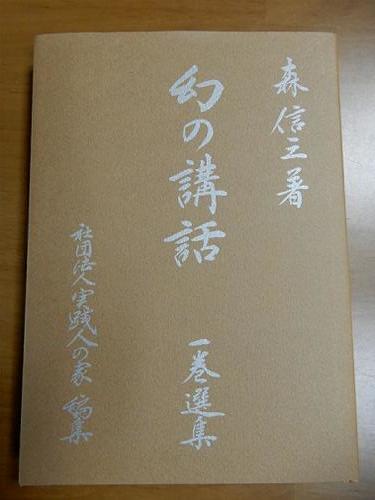 森信三著
幻の講話 一巻選集
社団法人実践人の家 編集